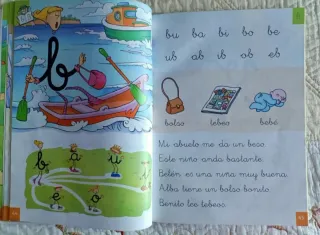 b
b a u
e i o
bu ba bi bo be
ub ab ib ob eb
bolso tebeo bebé
Mi abuelo me da un beso.
Este niño anda bastante.
Belén es una niña muy buena.
Alba tiene un bolso bonito.
Benito lee tebeos.